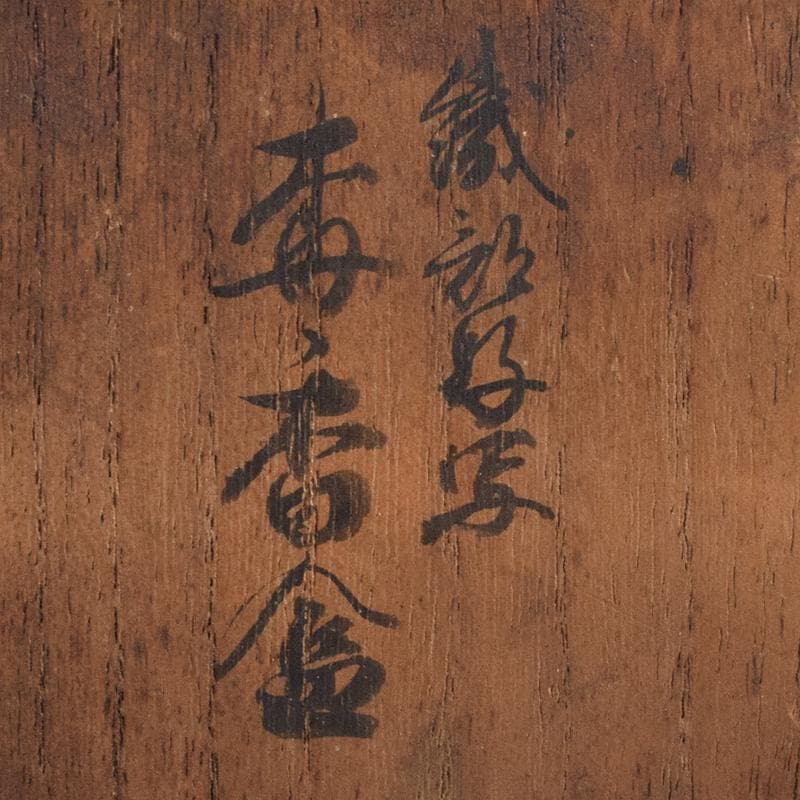 織部好写
香盒